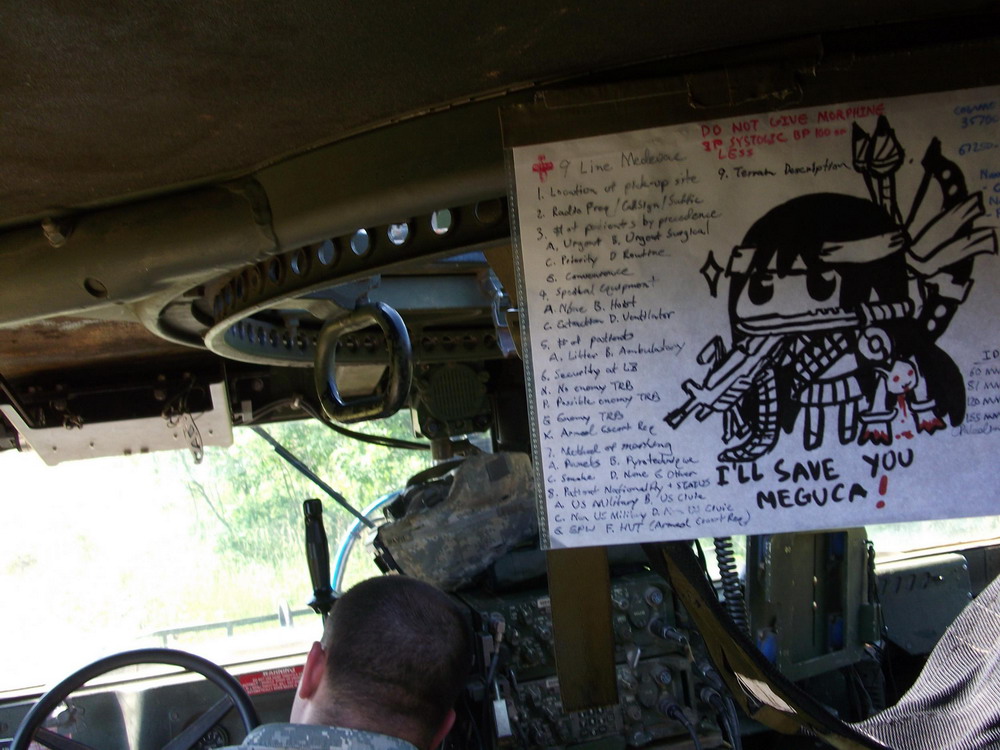 DO NOT GIVE MORPHINE
IF SYSTOLIC BP 100 or
LESS
9 Line Medevac
1. Location of pick-up site
2. Radio Freq / CallSign / Suffix
3. # of patients by precedence
A. Urgent B. Urgent Surgical
C. Priority D. Routine
E. Convenience
4. Special Equipment
A. None B. Hoist
C. Extraction D. Ventilator
5. # of patients
A. Litter B. Ambulatory
6. Security at LZ
N. No enemy TRP
P. Possible enemy TRP
E Enemy TRP
X. Armed Escort Req
7. Method of marking
A. Panels B. Pyrotechnique
C. Smoke D. None E Other
8. Patient Nationality + STATUS
A US Military B. US Civic
C. Non US Military D. Non US Civic
E EPW F. HVT (Armed Escort Req)
9. Terrain Description
I'LL SAVE YOU
MEGUCA!
60 MM
81 MM
120 MM
155 MM
WARNING